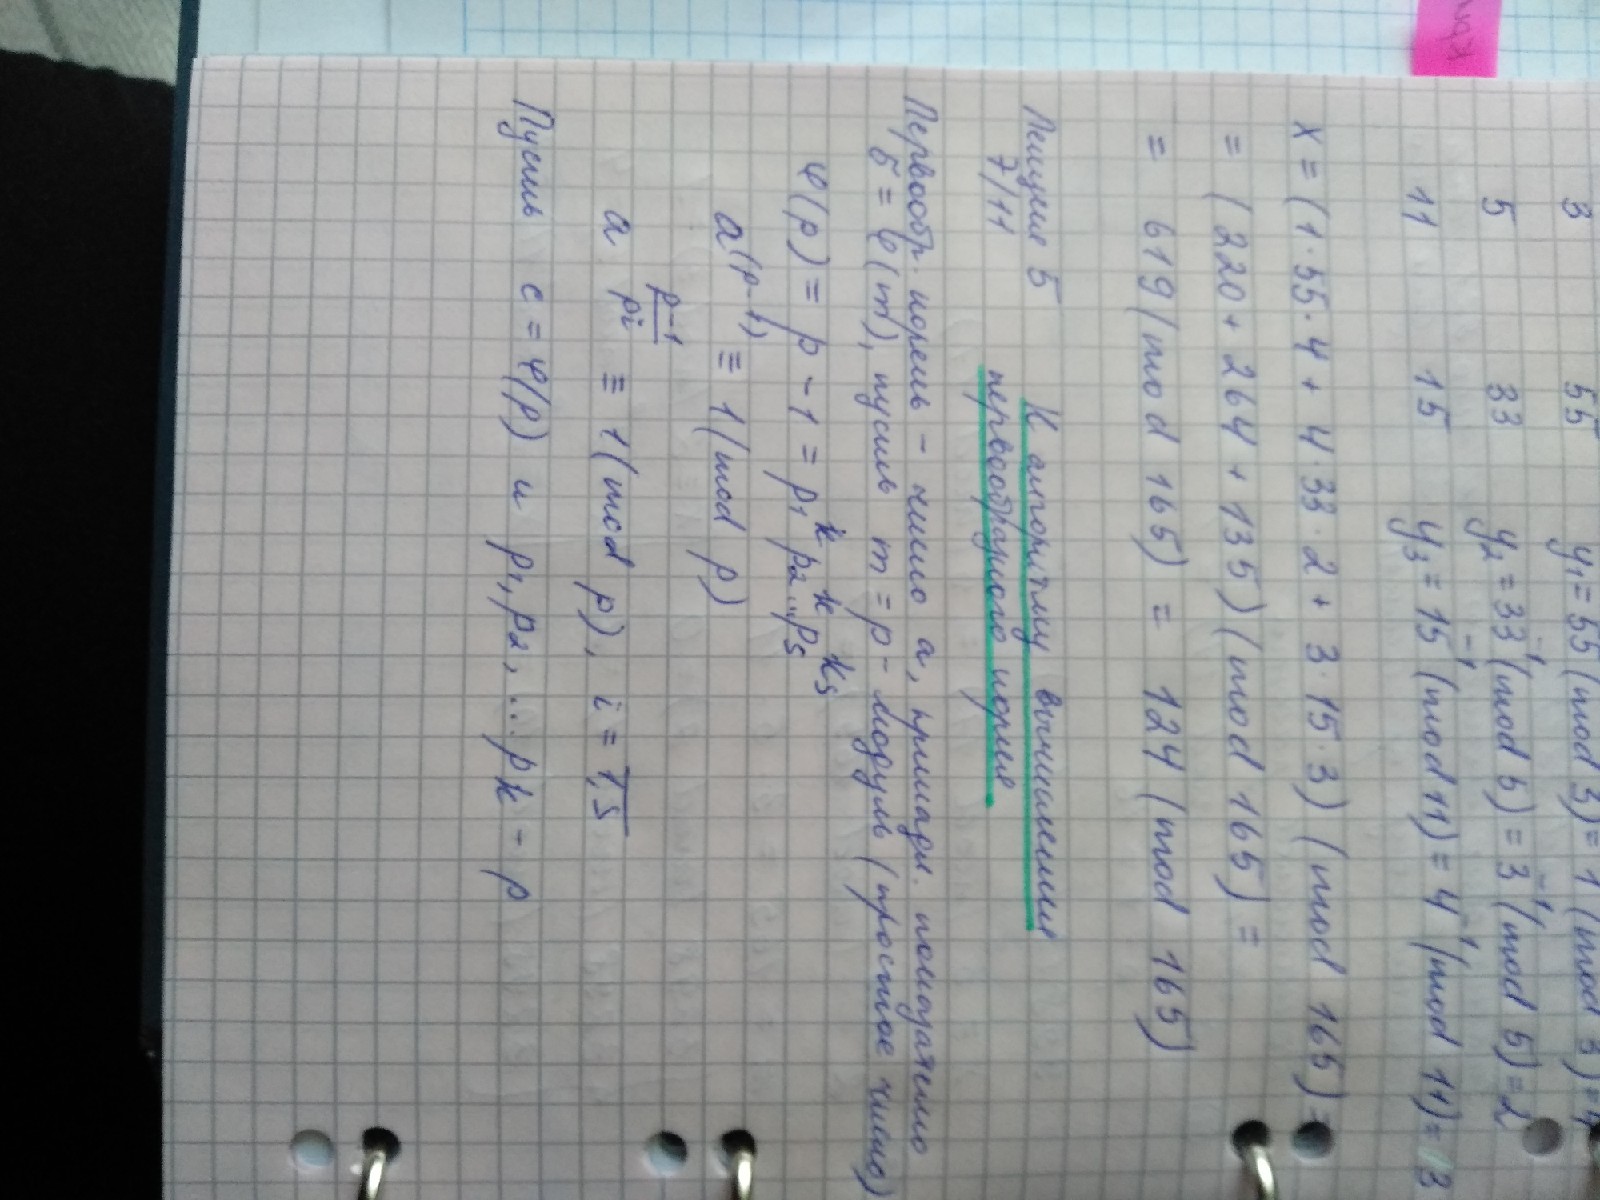 3 55 y₁ = 55 (mod 3) = 1 (mod 3) = 4
5 33 y₂ = 33⁻¹ (mod 5) = 3⁻¹ (mod 5) = 2
11 15 y₃ = 15⁻¹ (mod 11) = 4⁻¹ (mod 11) = 3
x = (1·55·4 + 4·33·2 + 3·15·3) (mod 165) =
= (220 + 264 + 135) (mod 165) =
= 619 (mod 165) = 124 (mod 165)
Лекция 5 К алгоритму вычисления
7/11 первообразного корня
Первообр. корень – число a, принадл. показателю
δ = φ(m), пусть m = p – модуль (простое число)
φ(p) = p – 1 = p₁ᵏ p₂ᵏ ... p_s^(k_s)
a^(p–1) ≡ 1 (mod p)
a^((p–1)/pᵢ) ≡ 1 (mod p), i = 1,s
Пусть c = φ(p) и p₁, p₂, ... pₖ – p